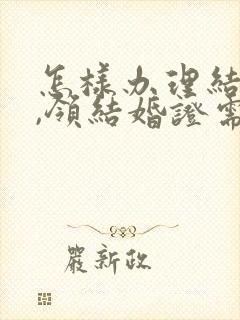 怎樣办理結
,領結婚證需
嚴新政